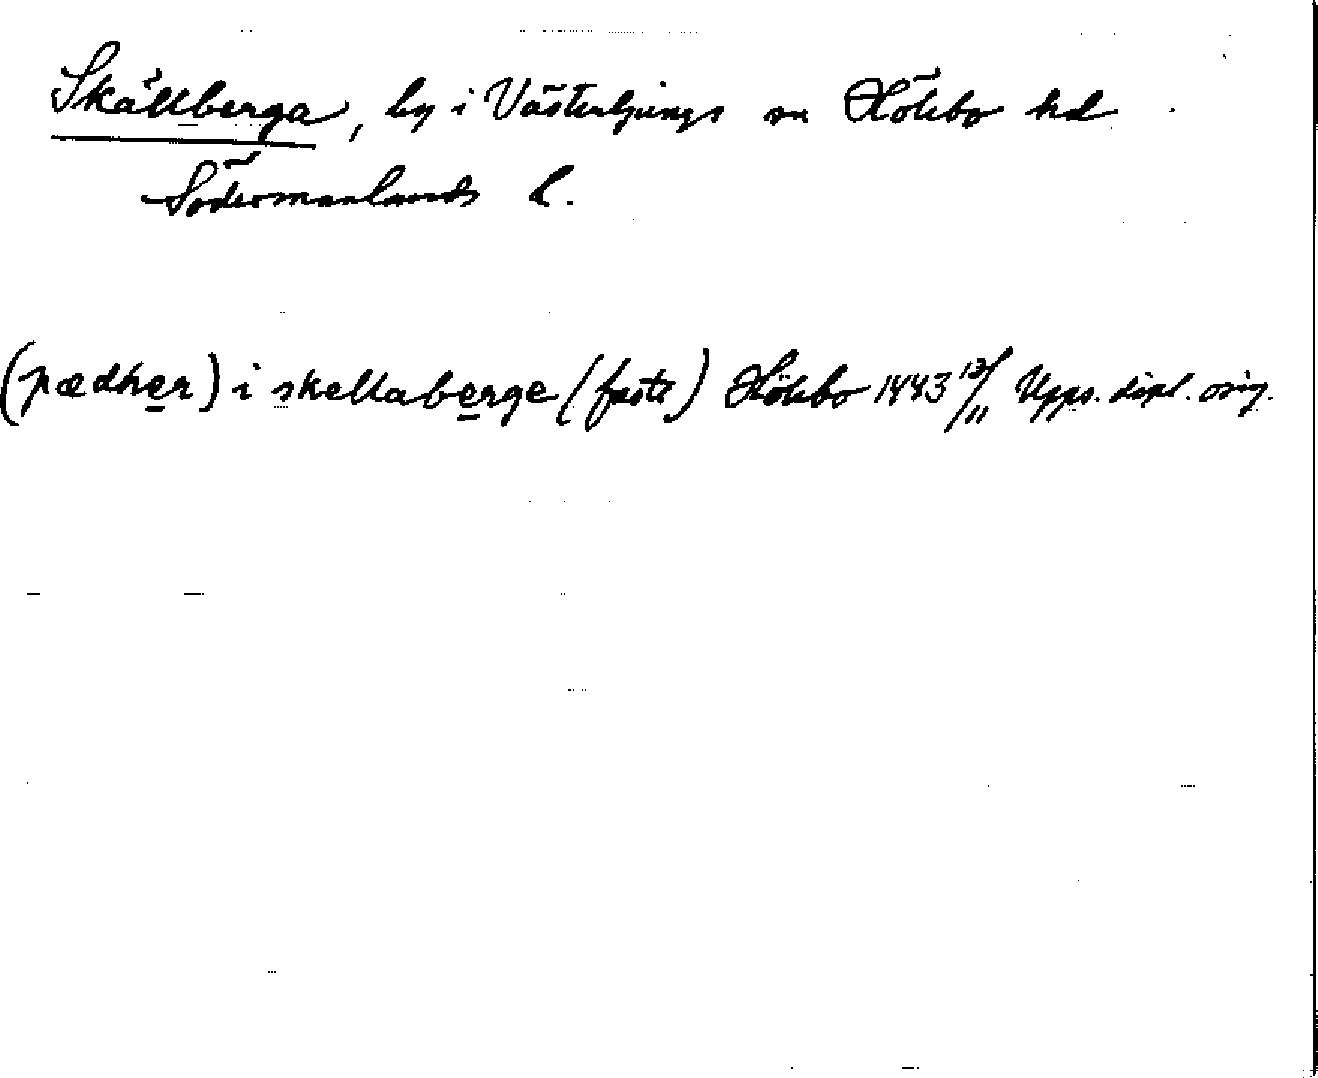 Skällberga, by i Västerljungs sn Hölebo hd
Södermanlands l.
(pædher) i skellaberge (faste) Hölebo 1443 12/11 Upps. dipl. orig.